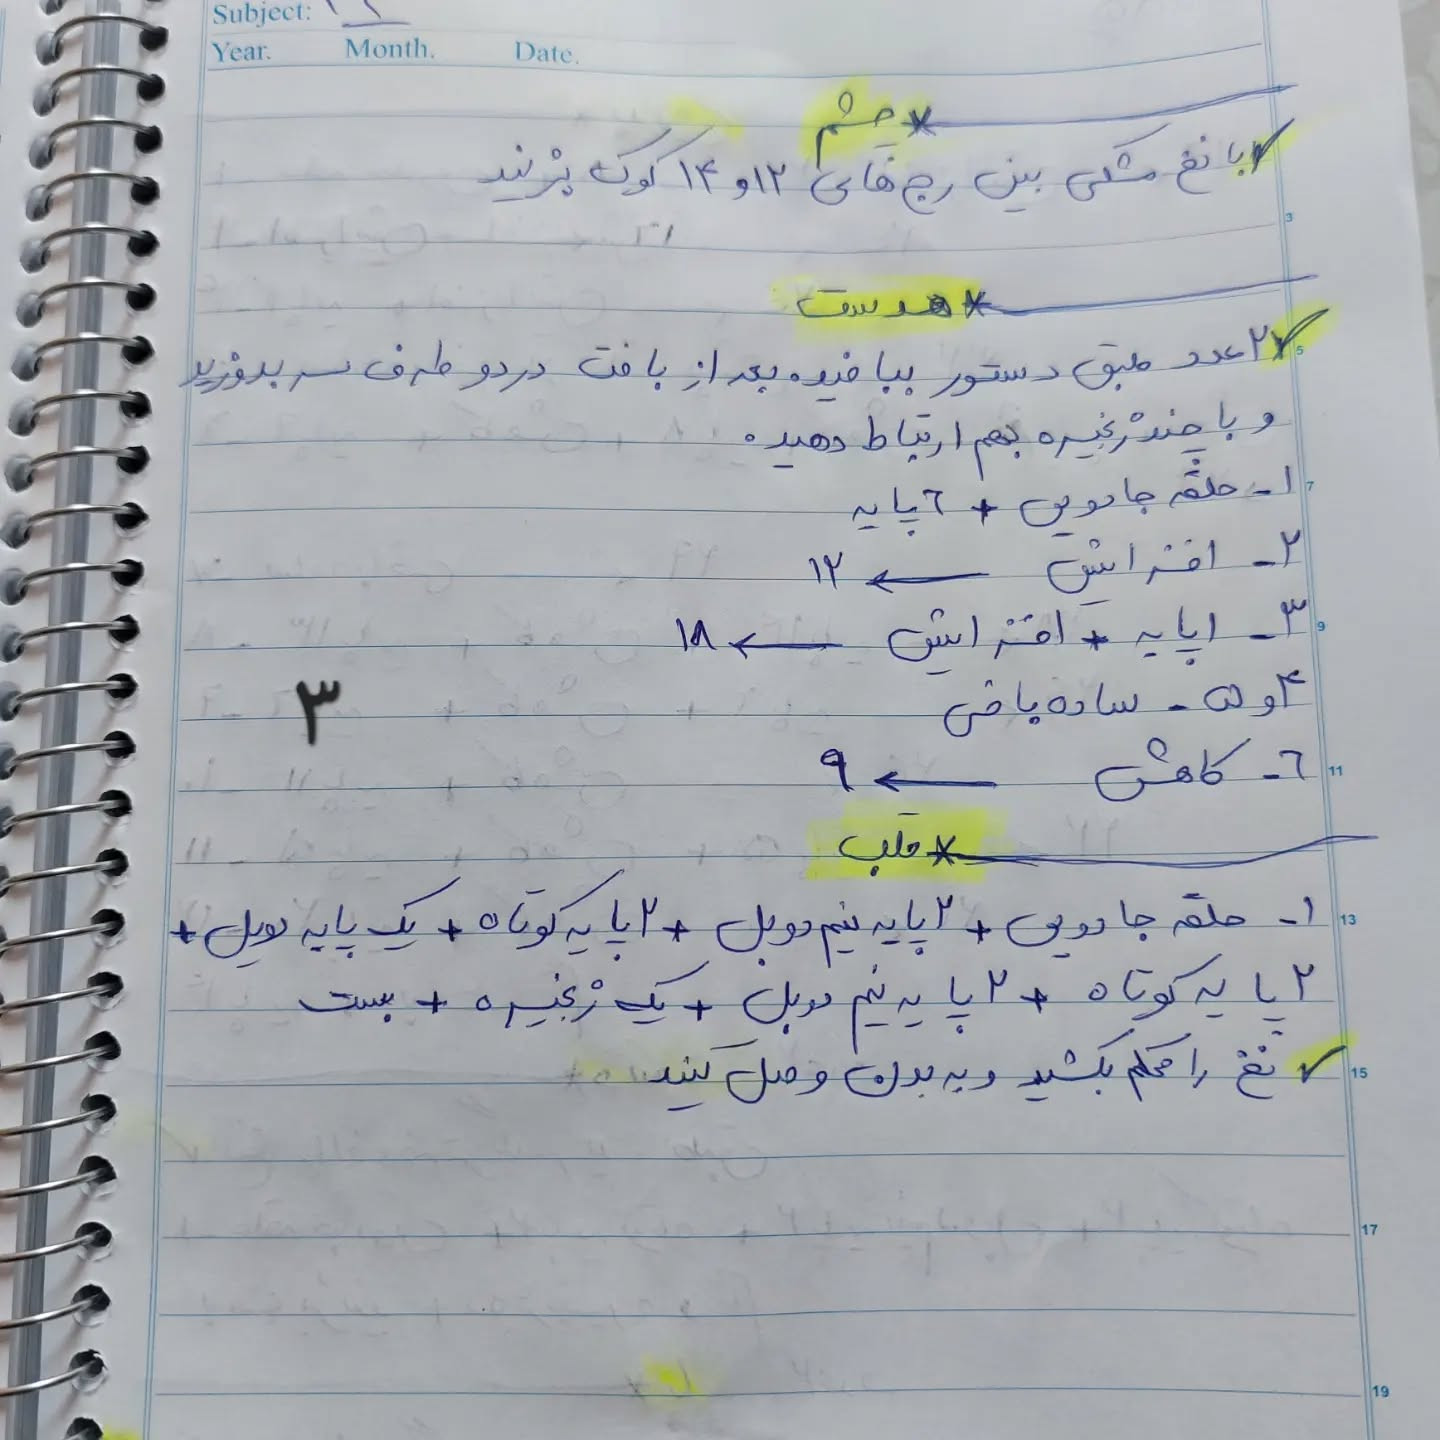 Subject:
Year. Month. Date.
* چشم
✓ با نخ مشکی بین رج های ۱۲ و ۱۴ کوک بزنید
3
* هدست
✓ ۲ عدد طبق دستور ببافید، بعد از بافت در دو طرف سر بدوزید
5
و با چند زنجیره بهم ارتباط دهید.
۱- حلقه جادویی + ۶ پایه
7
۲- افزایش ← ۱۲
۳- ۱ پایه + افزایش ← ۱۸
9
۴ و ۵ - ساده بافی
۳
۶- کاهش ← ۹
11
* قلب
۱- حلقه جادویی + ۲ پایه نیم دوبل + ۲ پایه کوتاه + یک پایه دوبل +
13
۲ پایه کوتاه + ۲ پایه نیم دوبل + یک زنجیره + بست
✓ نخ را محکم بکشید و به بدن وصل کنید
15
17
19